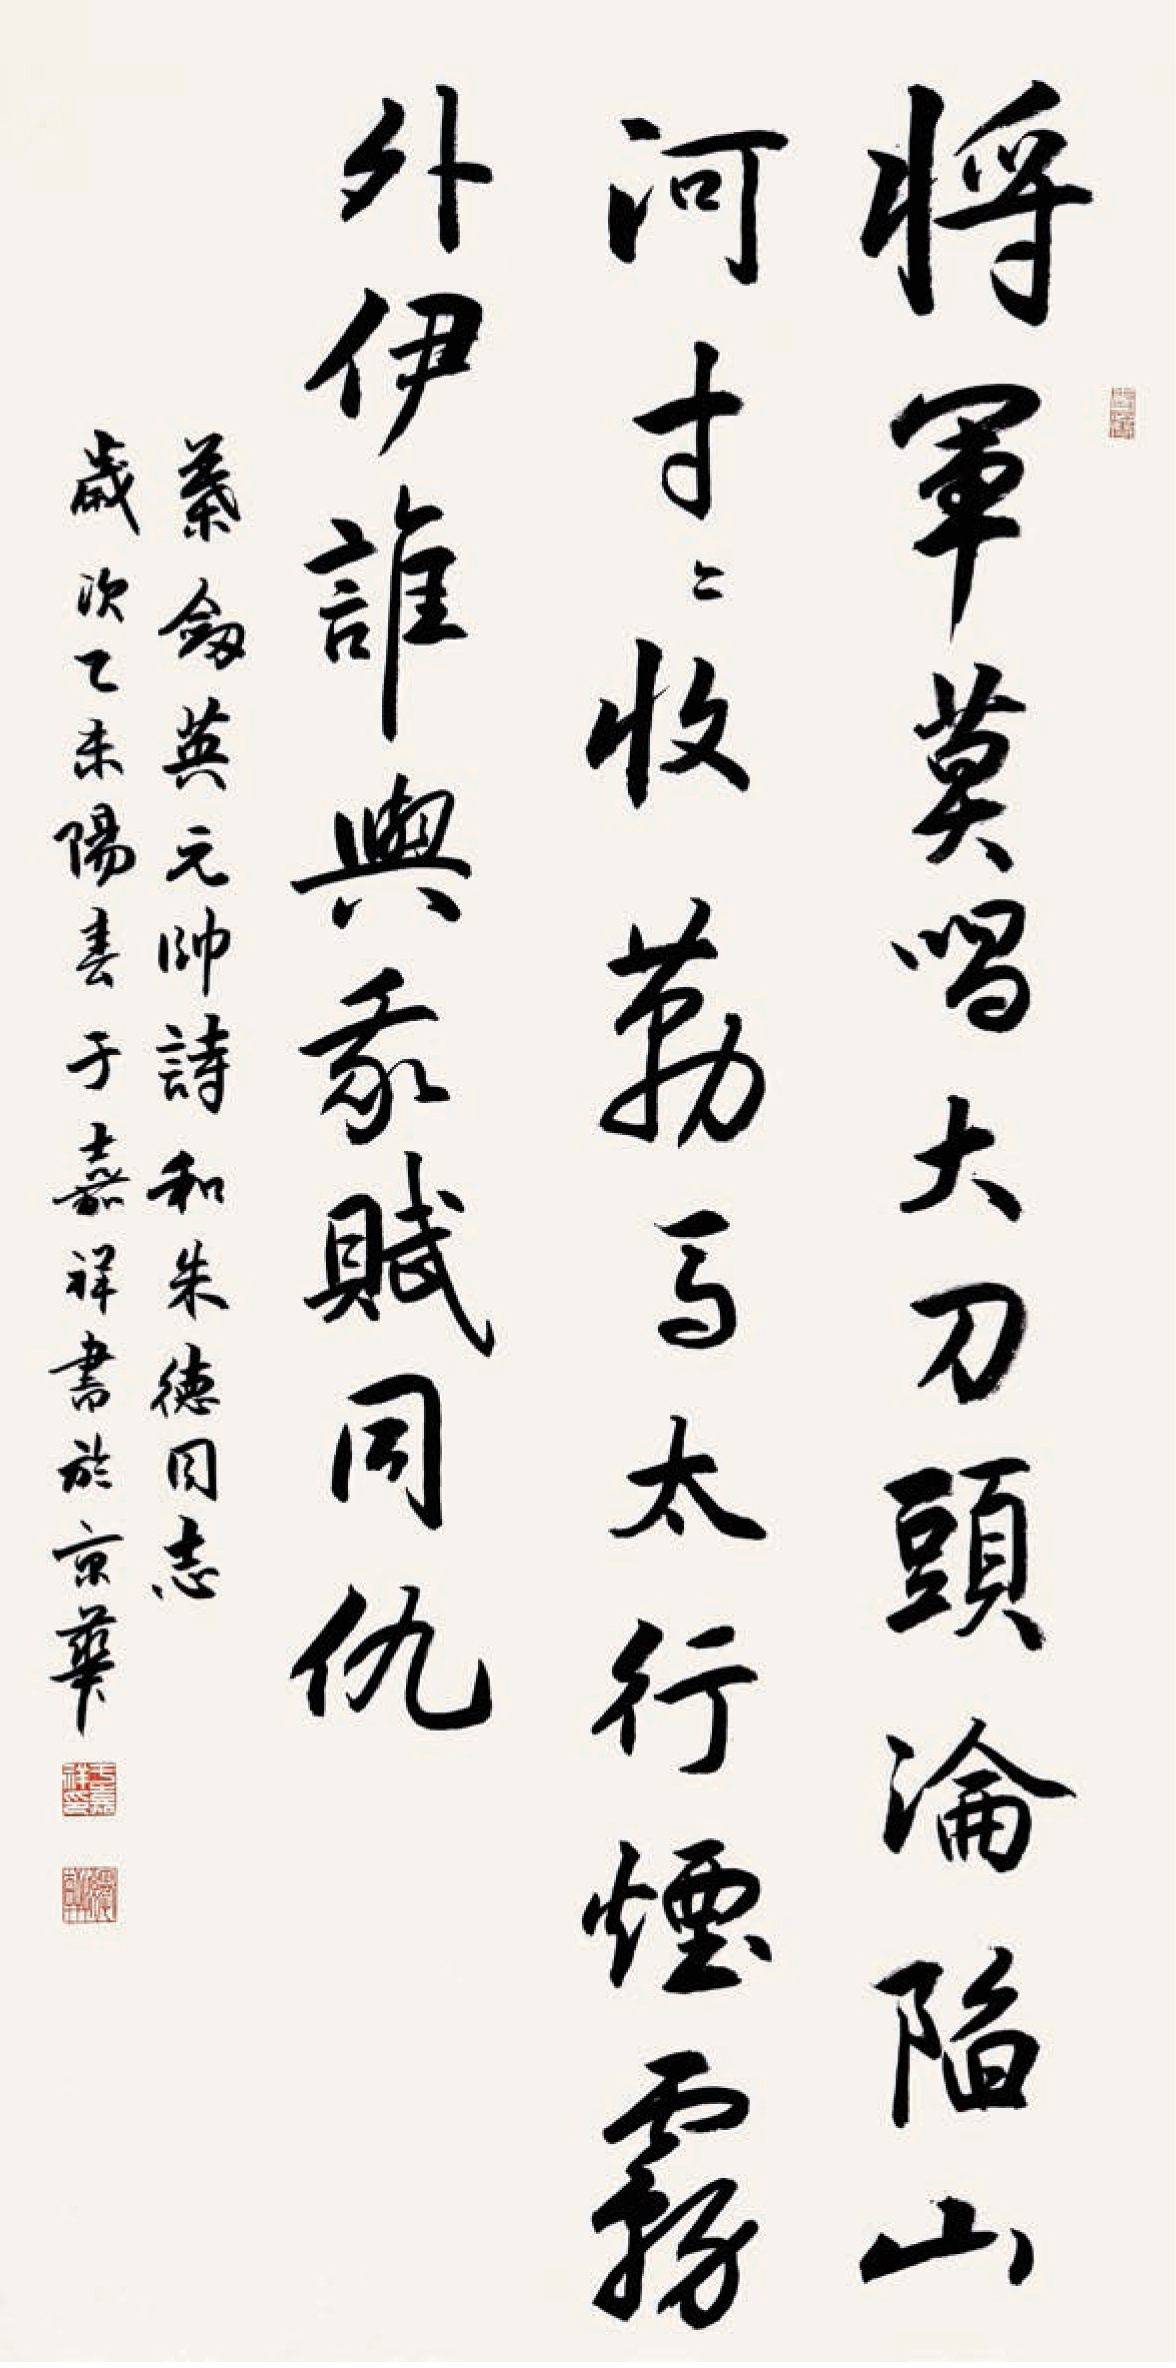 將軍莫唱大刀頭淪陷山
河寸〻收勒马太行煙霧
外伊誰與我賦同仇
葉劍英元帥詩和朱德同志
歲次乙未陽春于嘉祥書於京華
于嘉祥印